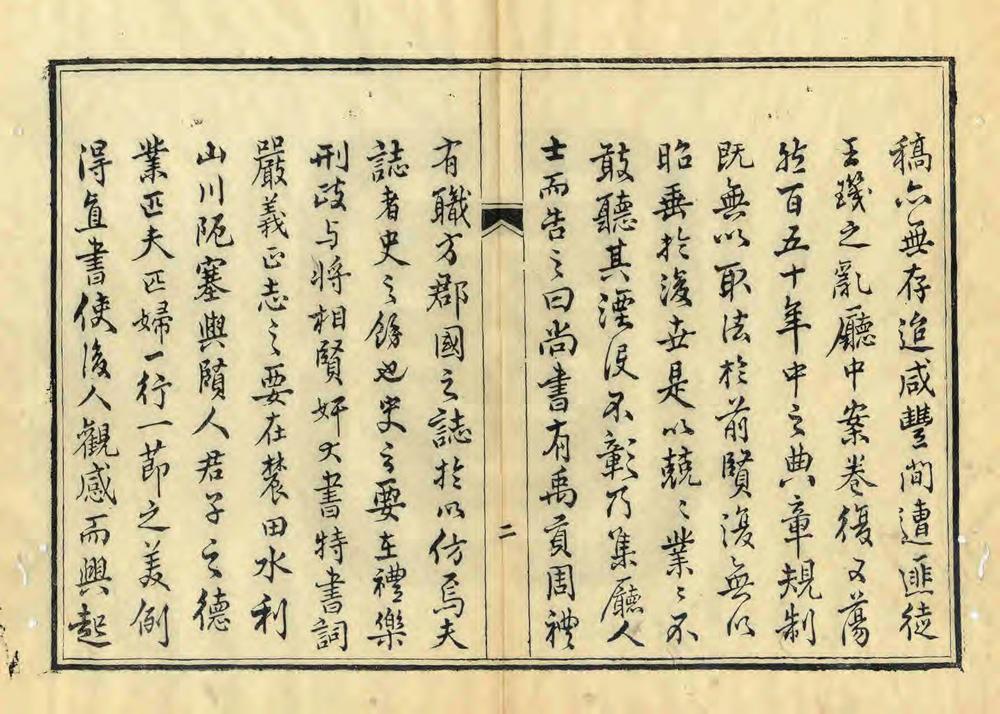 稿亦無存追咸豐間遭匪徒
王璣之亂廳中案卷復又蕩
然百五十年中之典章規制
既無以取法於前賢復無以
昭垂於後世是以兢〻業〻不
敢聽其湮沒不彰乃集廳人
士而告之曰尚書有禹貢周禮
二
有職方郡國之誌於以仿焉夫
誌者史之餘也史之要在禮樂
刑政与將相賢奸大書特書詞
嚴義正志之要在農田水利
山川阨塞與賢人君子之德
業匹夫匹婦一行一節之美例
得直書使後人觀感而興起